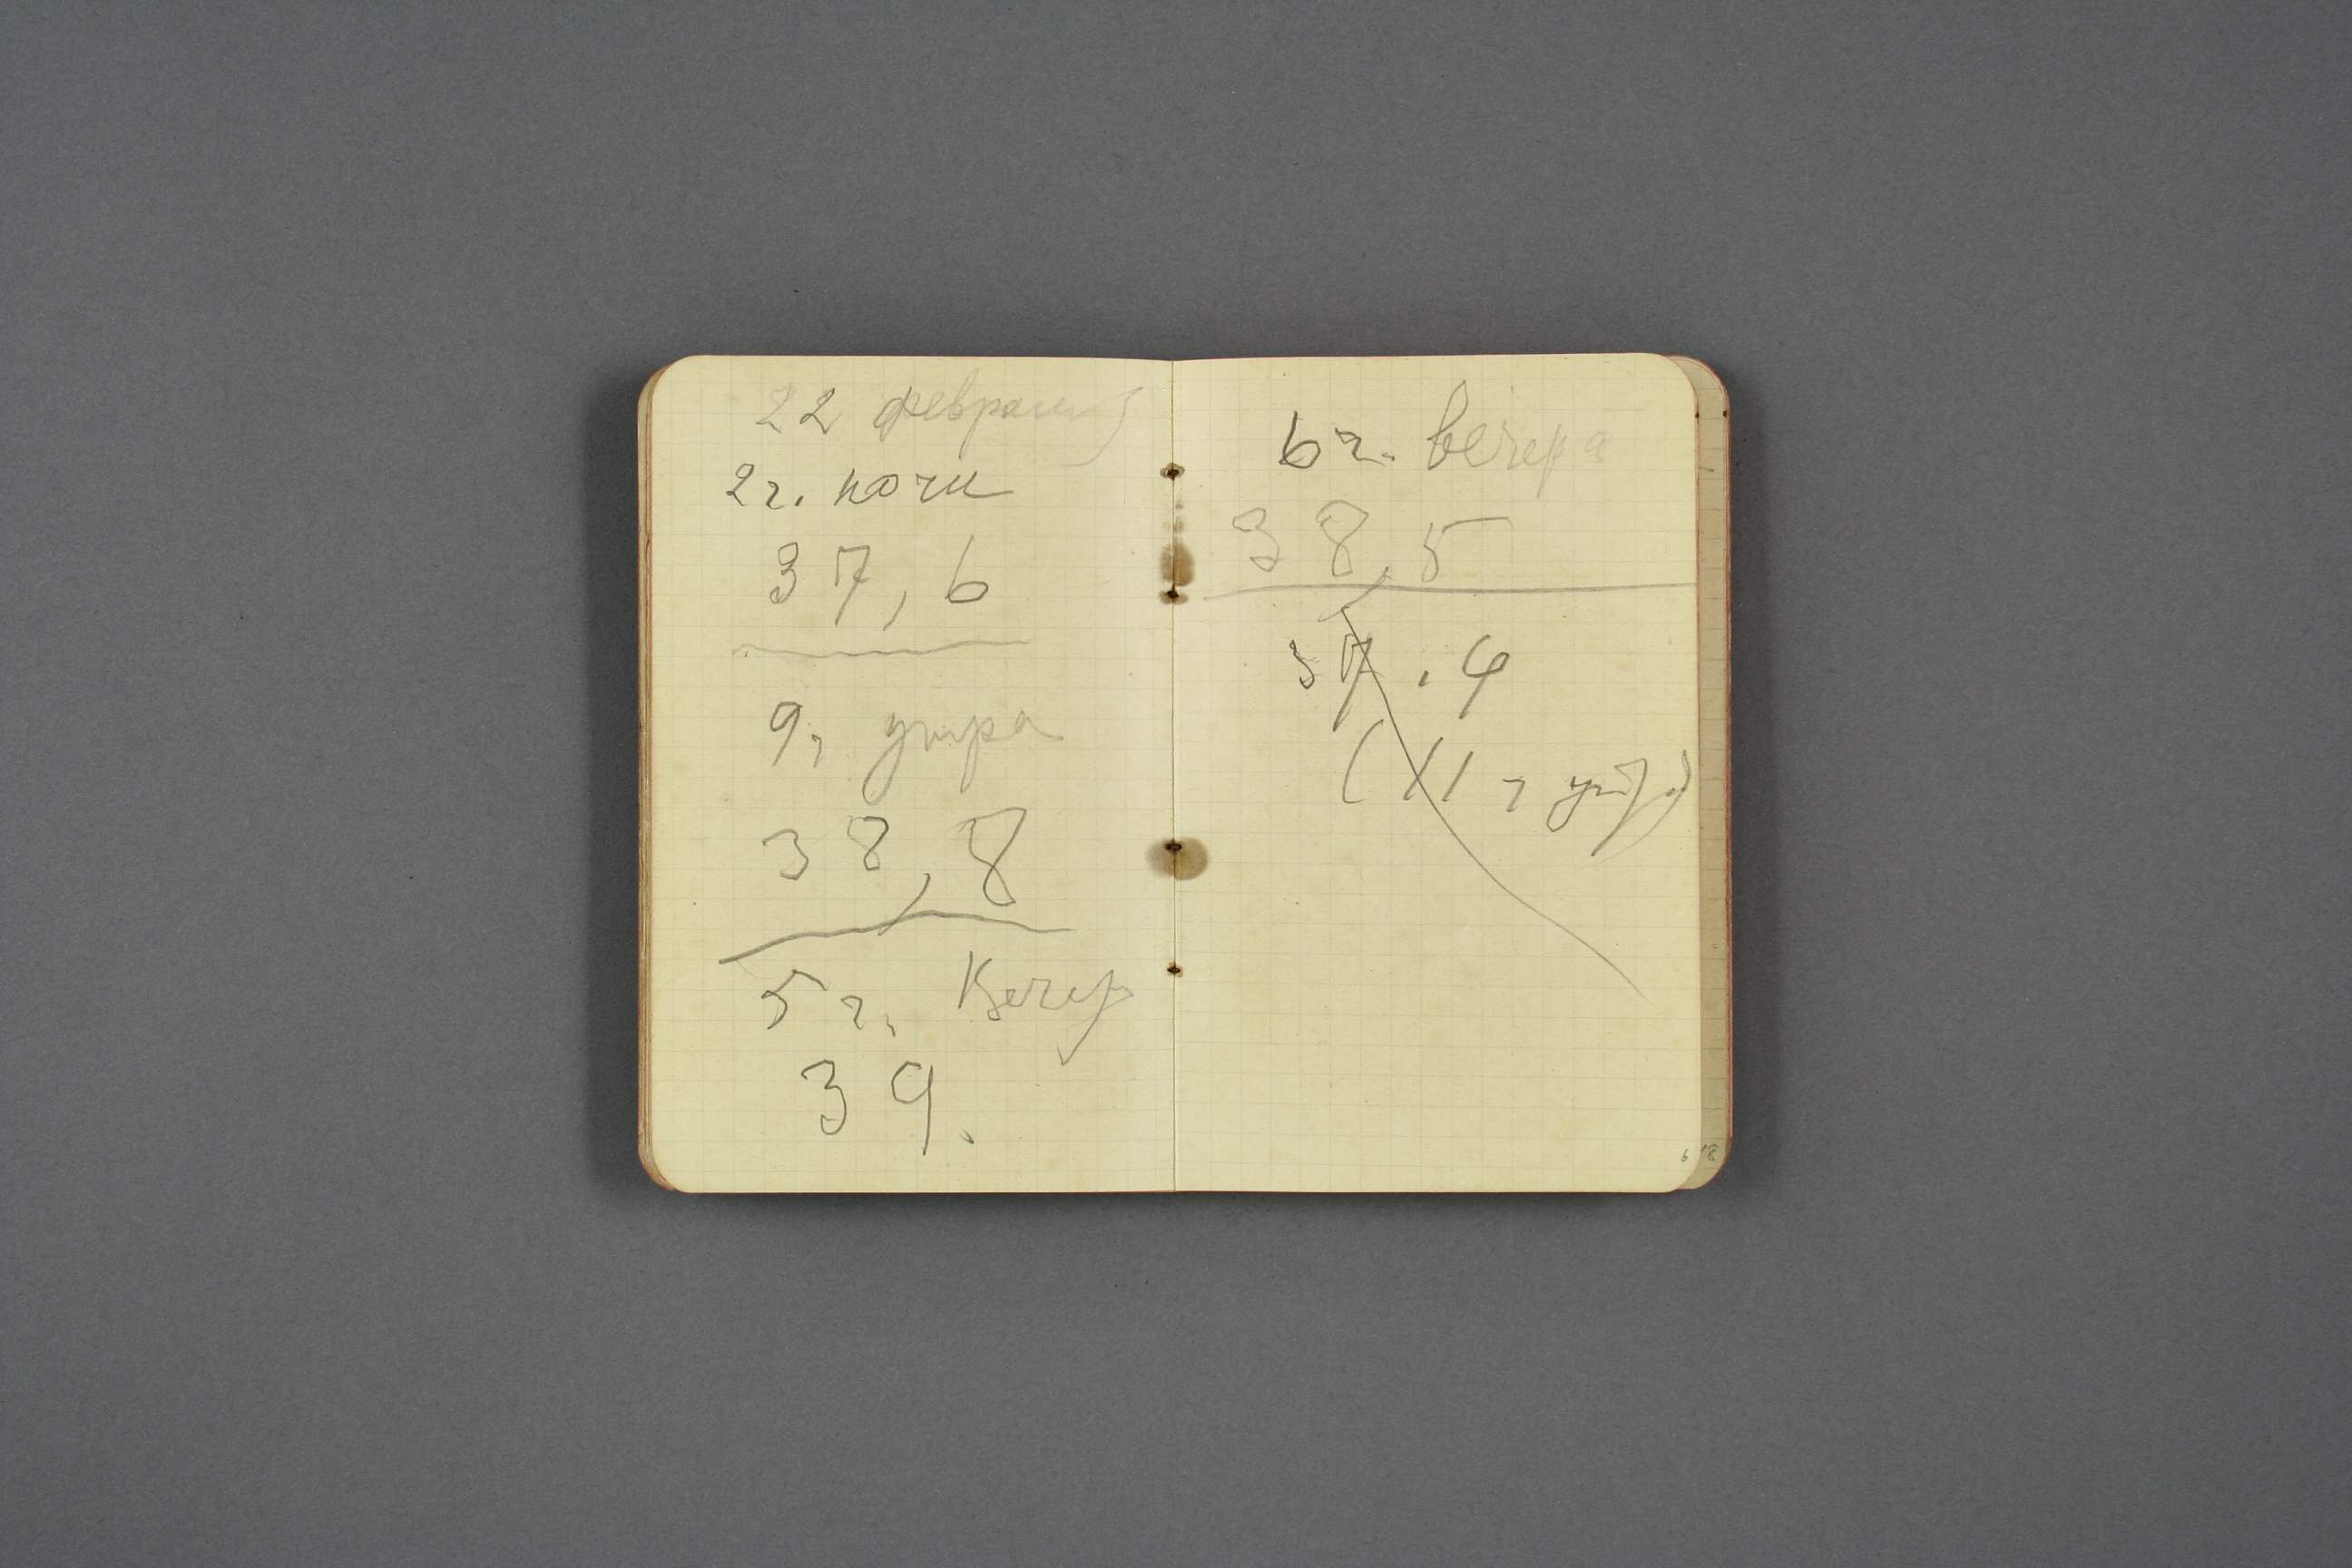 22 февраля
2 ч. ночи
37,6
9 ч утра
38,8
5 ч. Вечер
39.
6 ч. вечера
38,5
37.4
(11 ч утр.)